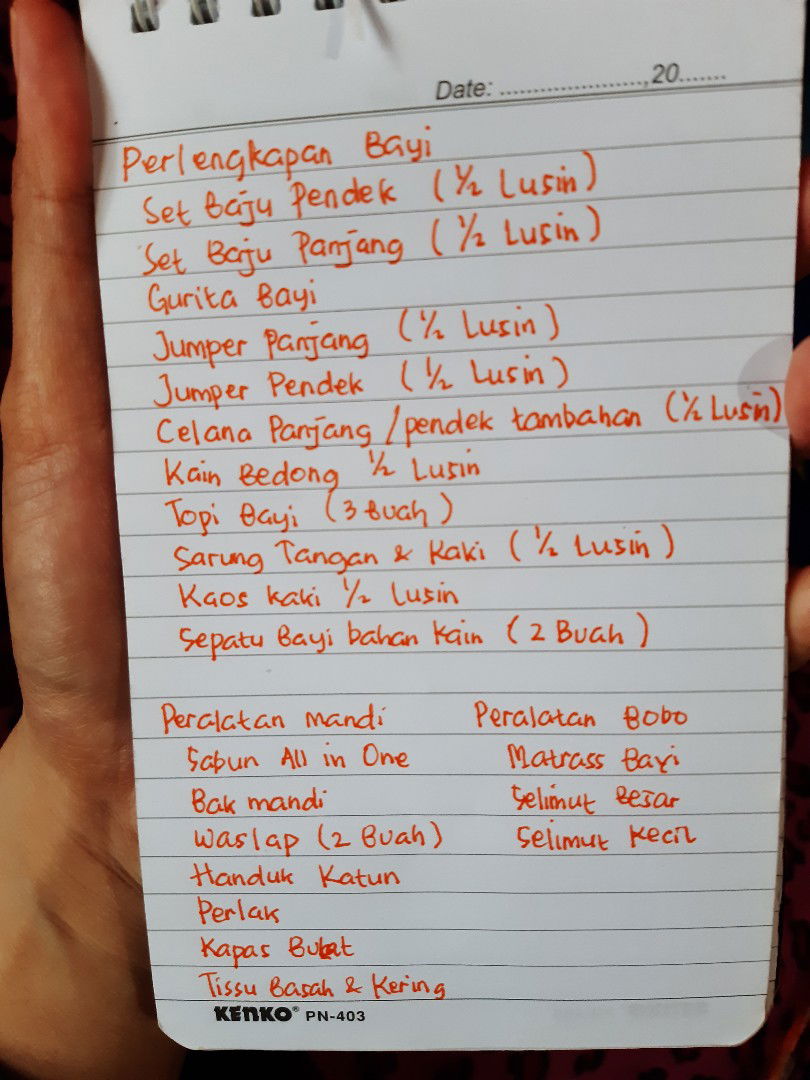 Date: ....................,20.......
Perlengkapan Bayi
Set Baju Pendek (1/2 Lusin)
Set Baju Panjang (1/2 Lusin)
Gurita Bayi
Jumper Panjang (1/2 Lusin)
Jumper Pendek (1/2 Lusin)
Celana Panjang/pendek tambahan (1/2 Lusin)
Kain Bedong 1/2 Lusin
Topi Bayi (3 Buah)
Sarung Tangan & Kaki (1/2 Lusin)
Kaos kaki 1/2 Lusin
Sepatu Bayi bahan Kain (2 Buah)
Peralatan mandi
Sabun All in One
Bak mandi
Waslap (2 Buah)
Handuk Katun
Perlak
Kapas Bulat
Tissu Basah & Kering
Peralatan Bobo
Matrass Bayi
Selimut Besar
Selimut Kecil
KENKO® PN-403